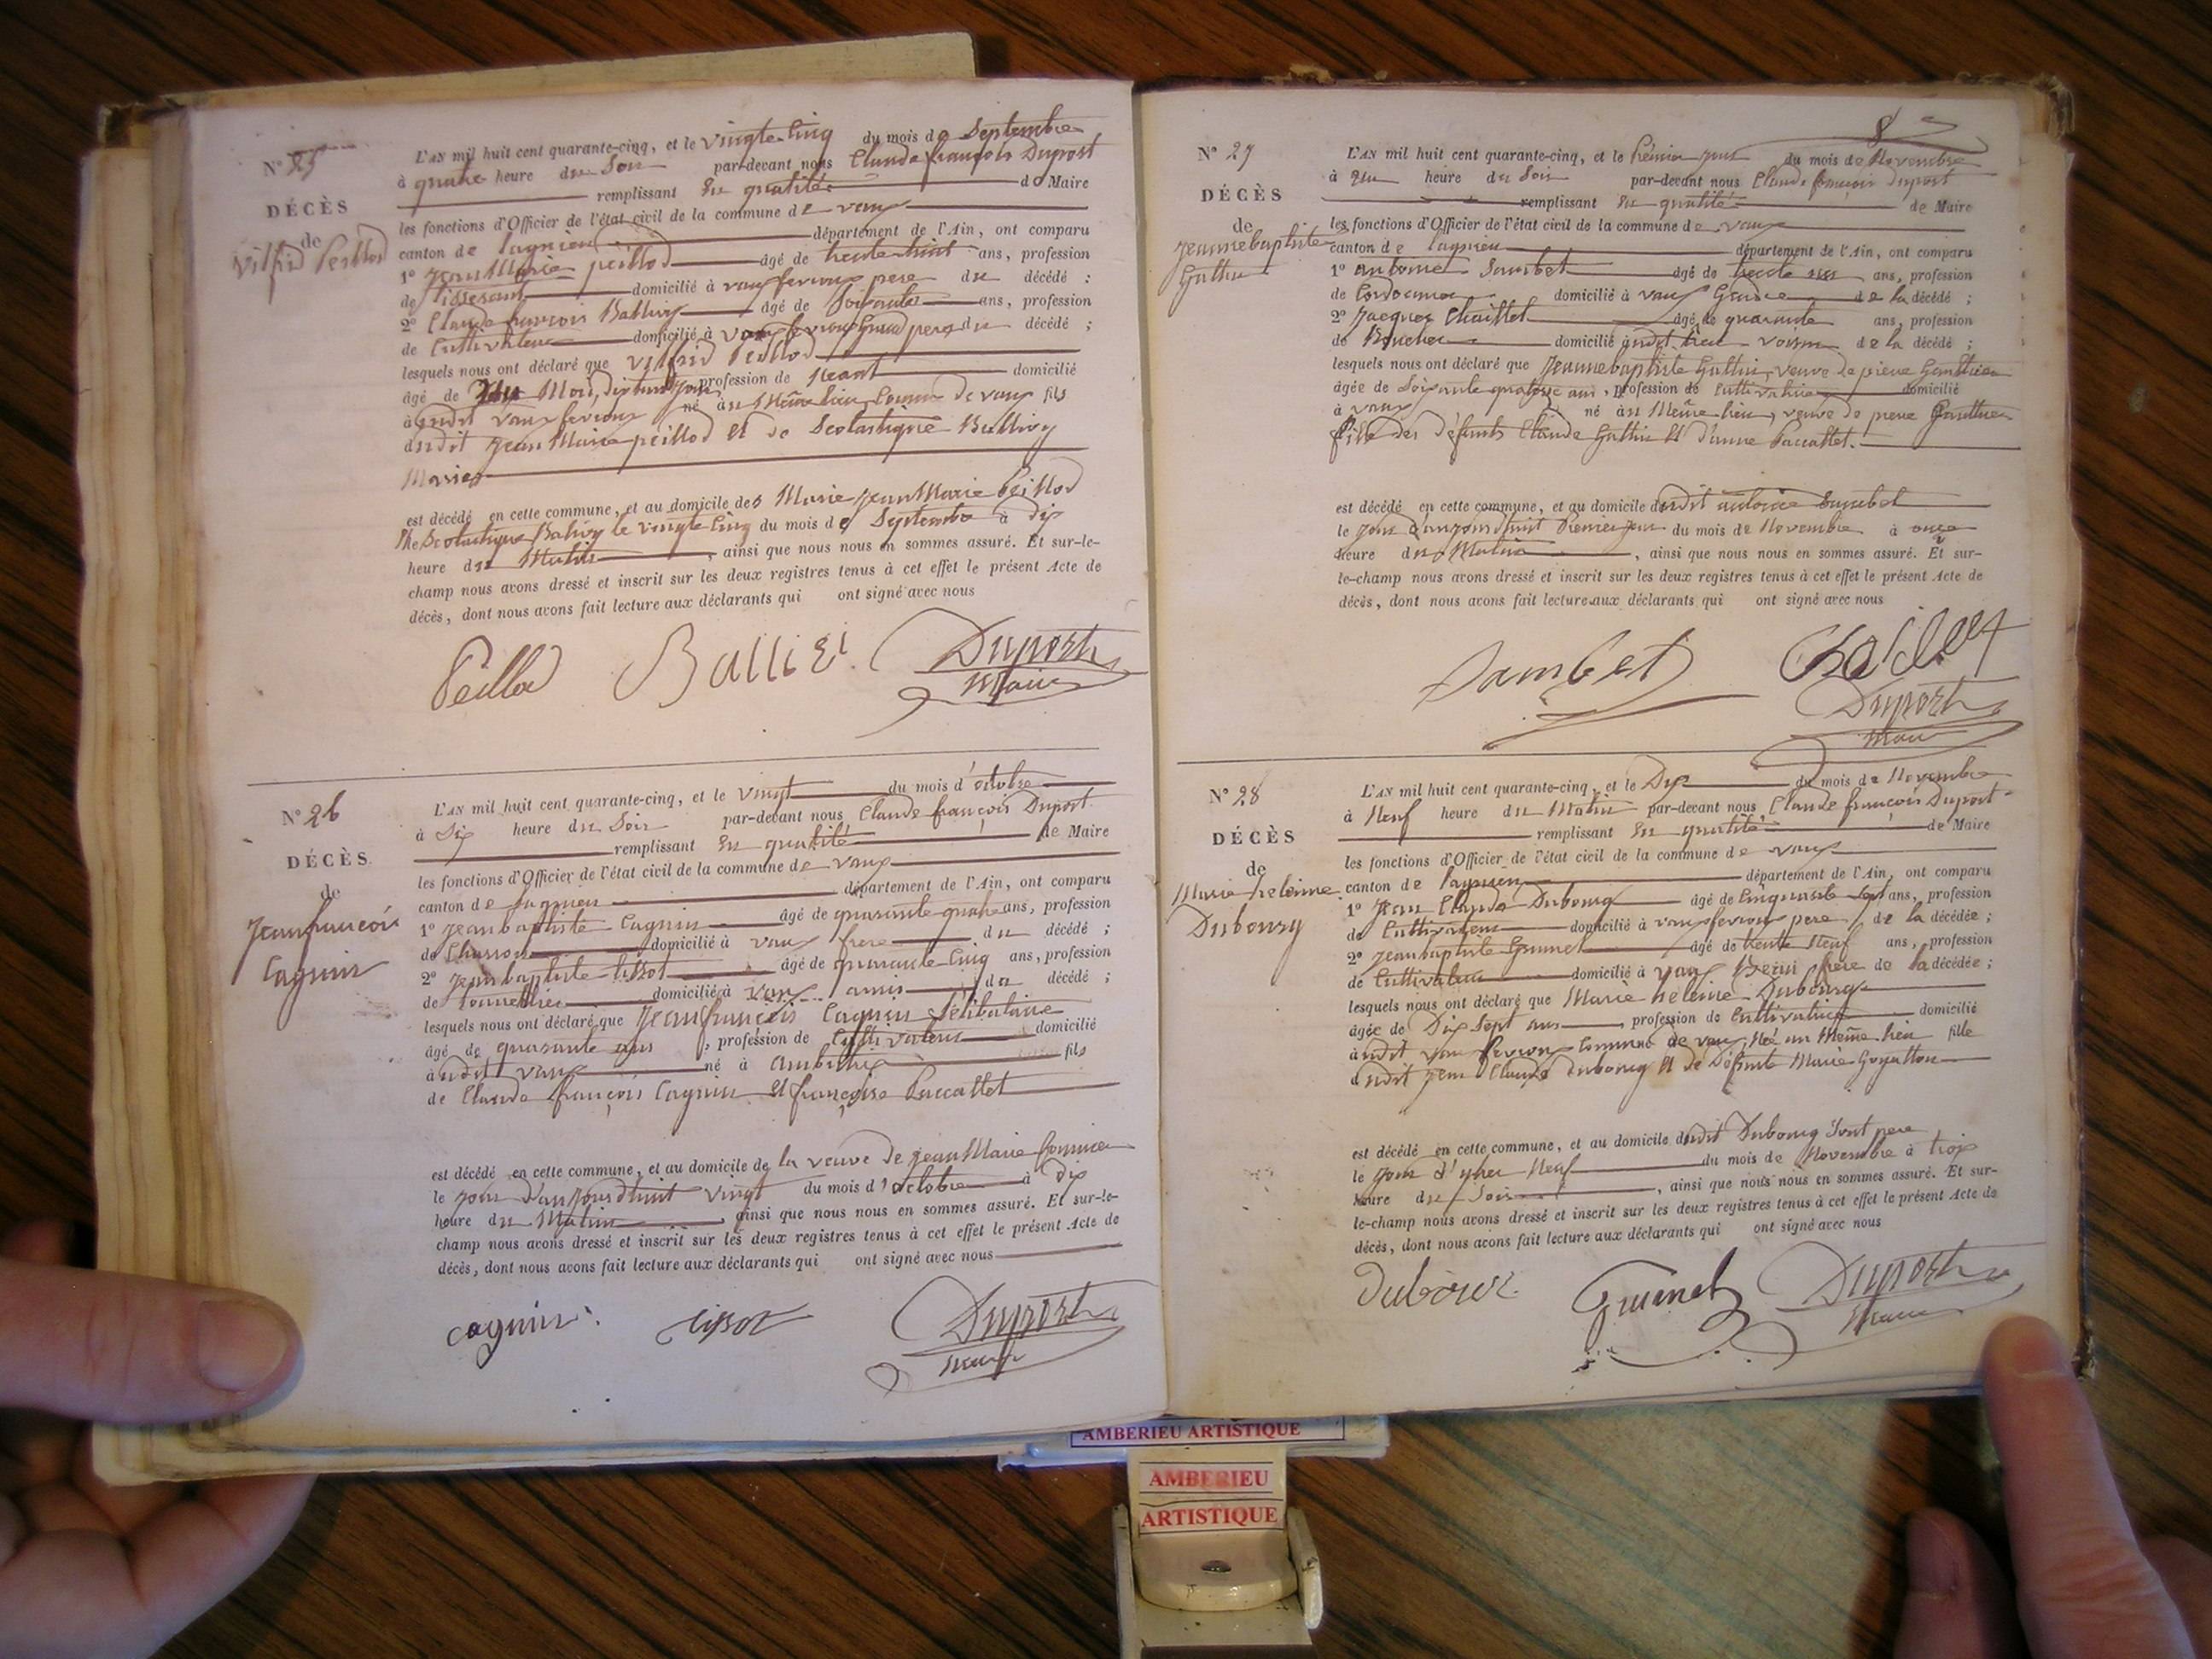 N° 25
DÉCÈS
de
Vilfrid Peillod
L'AN mil huit cent quarante-cinq, et le vingte cinq du mois de Septembre
à quatre heure du Soir par-devant nous Claude françois Duport
remplissant En qualité de Maire
les fonctions d'Officier de l'état civil de la commune de vaux
canton de lagnieu département de l'Ain, ont comparu
1° Jean Marie peillod âgé de trente huit ans, profession
de tisserant domicilié à vaux fevroux pere du décédé ;
2° Claude françois Ballivy âgé de Soixante ans, profession
de Cultivateur domicilié à vaux fevroux Grand pere du décédé ;
lesquels nous ont déclaré que Vilfrid Peillod
âgé de Mois, dix huit jours profession de Neant domicilié
à audit vaux fevroux né au Même lieu, Commune de vaux fils
dudit Jean Marie peillod Et de Scolastique Ballivy
Mariés
est décédé en cette commune, et au domicile des Marie Jean Marie Peillod
Scolastique Balivy le vingte Cinq du mois de Septembre à dix
heure du Matin , ainsi que nous nous en sommes assuré. Et sur-le-
champ nous avons dressé et inscrit sur les deux registres tenus à cet effet le présent Acte de
décès, dont nous avons fait lecture aux déclarants qui ont signé avec nous
Peillod Ballivi Duport
Maire
N° 26
DÉCÈS
de
Jean françois
Cagnin
L'AN mil huit cent quarante-cinq, et le vingt du mois d'octobre
à Six heure du Soir par-devant nous Claude françois Duport
remplissant En qualité de Maire
les fonctions d'Officier de l'état civil de la commune de vaux
canton de Lagnieu département de l'Ain, ont comparu
1° Jean baptiste Cagnin âgé de quarante quatre ans, profession
de domicilié à vaux frere du décédé ;
2° Jean baptiste tissot âgé de quarante Cinq ans, profession
de tonnellier domicilié à vaux amis du décédé ;
lesquels nous ont déclaré que Jean françois Cagnin Sélibataire
âgé de quarante ans , profession de Cultivateur domicilié
à audit vaux né à Ambutrix fils
de Claude françois Cagnin Et françoise Paccallet
est décédé en cette commune, et au domicile de la veuve de Jean Marie
le jour d'aujourdhuit vingt du mois d'octobre à dix
heure du Matin , ainsi que nous nous en sommes assuré. Et sur-le-
champ nous avons dressé et inscrit sur les deux registres tenus à cet effet le présent Acte de
décès, dont nous avons fait lecture aux déclarants qui ont signé avec nous
cagnin tissot Duport
Maire
8
N° 27
DÉCÈS
de
Jeanne baptiste
Guttin
L'AN mil huit cent quarante-cinq, et le Prémier jour du mois de Novembre
à une heure du Soir par-devant nous Claude françois Duport
remplissant En qualité de Maire
les fonctions d'Officier de l'état civil de la commune de vaux
canton de lagnieu département de l'Ain, ont comparu
1° antoine Sambet âgé de trente ans, profession
de Cordonnier domicilié à vaux Gendre de la décédé ;
2° Jacques Chaillet âgé de quarante ans, profession
de Boucher domicilié audit lieu voisin de la décédé ;
lesquels nous ont déclaré que Jeanne baptiste Guttin, veuve de pierre Gauthier
âgée de Soixante quatorze ans, profession de Cultivatrice domicilié
à vaux né au Même lieu, veuve de pierre Gauthier
fille des défunts Claude Guttin Et d'anne Paccallet.
est décédé en cette commune, et au domicile dudit antoine Sambet
le jour d'aujourdhuit Premier jour du mois de Novembre à onze
heure du Matin , ainsi que nous nous en sommes assuré. Et sur-
le-champ nous avons dressé et inscrit sur les deux registres tenus à cet effet le présent Acte de
décès, dont nous avons fait lecture aux déclarants qui ont signé avec nous
Sambet Chaillet
Duport
Maire
N° 28
DÉCÈS
de
Marie heleine
Dubourg
L'AN mil huit cent quarante-cinq, et le Dix du mois de Novembre
à Neuf heure du Matin par-devant nous Claude françois Duport
remplissant En qualité de Maire
les fonctions d'Officier de l'état civil de la commune de vaux
canton de lagnieu département de l'Ain, ont comparu
1° Jean Claude Dubourg âgé de Cinquante sept ans, profession
de Cultivateur domicilié à vaux fevroux pere de la décédée ;
2° Jean baptiste âgé de trente Neuf ans, profession
de Cultivateur domicilié à vaux frere de la décédée ;
lesquels nous ont déclaré que Marie heleine Dubourg
âgée de Dix Sept ans , profession de Cultivatrice domicilié
à audit vaux fevroux Commune de vaux, Née au Même lieu fille
dudit Jean Claude Dubourg Et de Défunte Marie
est décédé en cette commune, et au domicile dudit Dubourg pere
le jour d'yher Neuf du mois de Novembre à trois
heure du Soir , ainsi que nous nous en sommes assuré. Et sur-
le-champ nous avons dressé et inscrit sur les deux registres tenus à cet effet le présent Acte de
décès, dont nous avons fait lecture aux déclarants qui ont signé avec nous
Dubour Duport
Maire
AMBERIEU ARTISTIQUE
AMBERIEU
ARTISTIQUE